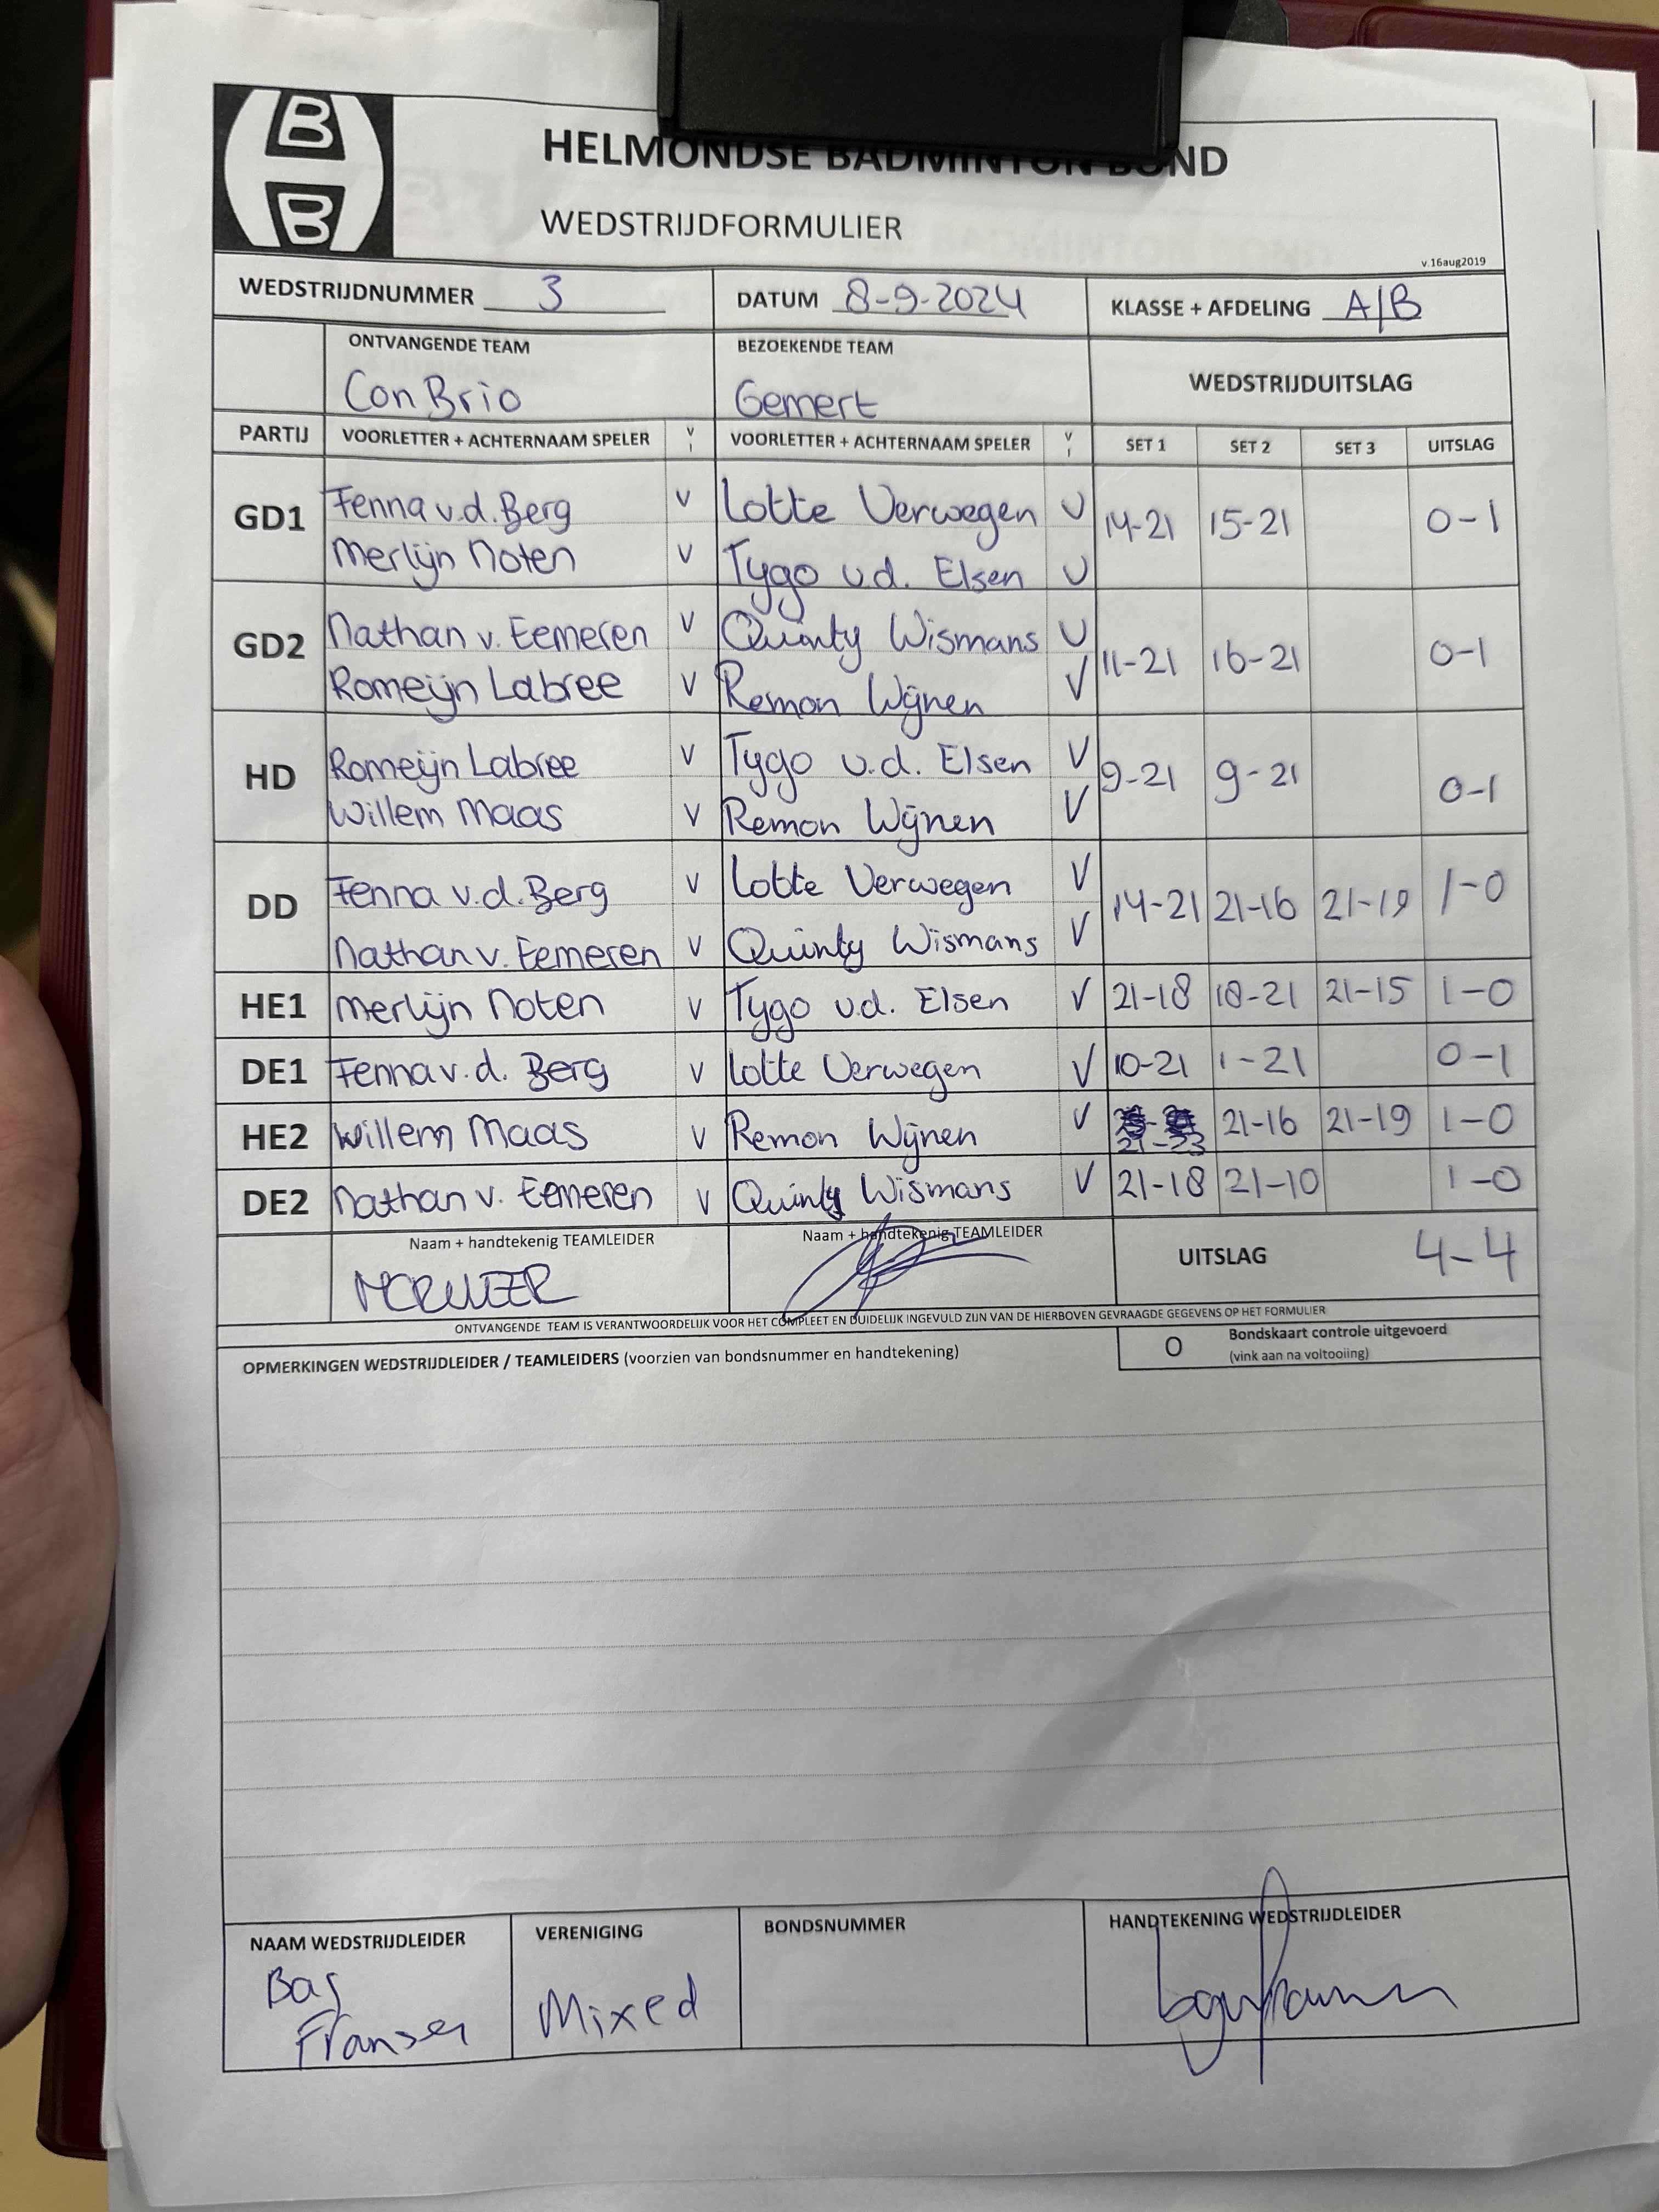 B
B
HELMONDSE BADMINTON BOND
WEDSTRIJDFORMULIER
v.16aug2019
WEDSTRIJDNUMMER 3 DATUM 8-9-2024 KLASSE + AFDELING A/B
ONTVANGENDE TEAM BEZOEKENDE TEAM WEDSTRIJDUITSLAG
Con Brio Gemert
PARTIJ VOORLETTER + ACHTERNAAM SPELER V VOORLETTER + ACHTERNAAM SPELER V SET 1 SET 2 SET 3 UITSLAG
GD1 Fenna v.d. Berg V Lotte Verwegen V 14-21 15-21 0-1
Merlijn Noten V Tygo v.d. Elsen V
GD2 Nathan v. Eemeren V Quinty Wismans V 11-21 16-21 0-1
Romeijn Labree V Remon Wijnen V
HD Romeijn Labree V Tygo v.d. Elsen V 9-21 9-21 0-1
Willem Maas V Remon Wijnen V
DD Fenna v.d. Berg V Lotte Verwegen V 14-21 21-16 21-19 1-0
Nathan v. Eemeren V Quinty Wismans V
HE1 Merlijn Noten V Tygo v.d. Elsen V 21-18 18-21 21-15 1-0
DE1 Fenna v.d. Berg V Lotte Verwegen V 10-21 1-21 0-1
HE2 Willem Maas V Remon Wijnen V 21-23 21-16 21-19 1-0
DE2 Nathan v. Eemeren V Quinty Wismans V 21-18 21-10 1-0
Naam + handtekenig TEAMLEIDER Naam + handtekenig TEAMLEIDER UITSLAG 4-4
ONTVANGENDE TEAM IS VERANTWOORDELIJK VOOR HET COMPLEET EN DUIDELIJK INGEVULD ZIJN VAN DE HIERBOVEN GEVRAAGDE GEGEVENS OP HET FORMULIER
OPMERKINGEN WEDSTRIJDLEIDER / TEAMLEIDERS (voorzien van bondsnummer en handtekening) O Bondskaart controle uitgevoerd
(vink aan na voltooiing)
NAAM WEDSTRIJDLEIDER VERENIGING BONDSNUMMER HANDTEKENING WEDSTRIJDLEIDER
Bas
Fransen Mixed